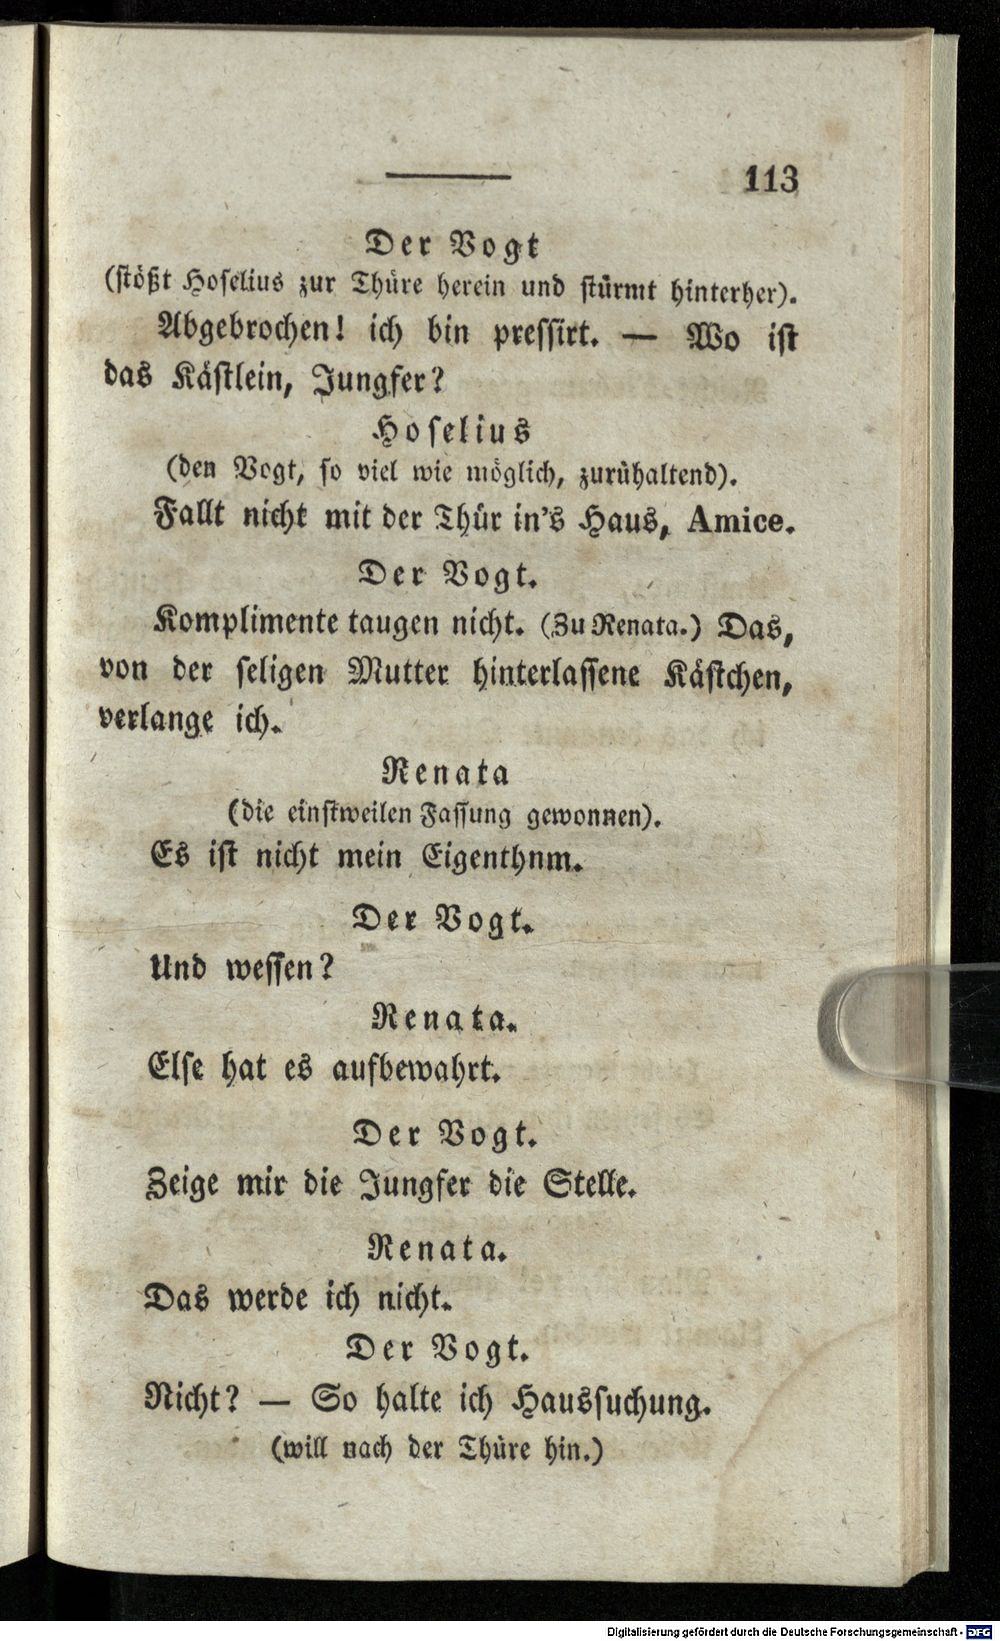 113
Der Vogt
(stößt Hoselius zur Thüre herein und stürmt hinterher).
Abgebrochen! ich bin pressirt. — Wo ist
das Kästlein, Jungfer?
Hoselius
(den Vogt, so viel wie möglich, zurühaltend).
Fallt nicht mit der Thür in's Haus, Amice.
Der Vogt.
Komplimente taugen nicht. (Zu Renata.) Das,
von der seligen Mutter hinterlassene Kästchen,
verlange ich.
Renata
(die einstweilen Fassung gewonnen).
Es ist nicht mein Eigenthnm.
Der Vogt.
Und wessen?
Renata.
Else hat es aufbewahrt.
Der Vogt.
Zeige mir die Jungfer die Stelle.
Renata.
Das werde ich nicht.
Der Vogt.
Nicht? — So halte ich Haussuchung.
(will nach der Thüre hin.)
Digitalisierung gefördert durch die Deutsche Forschungsgemeinschaft - DFG